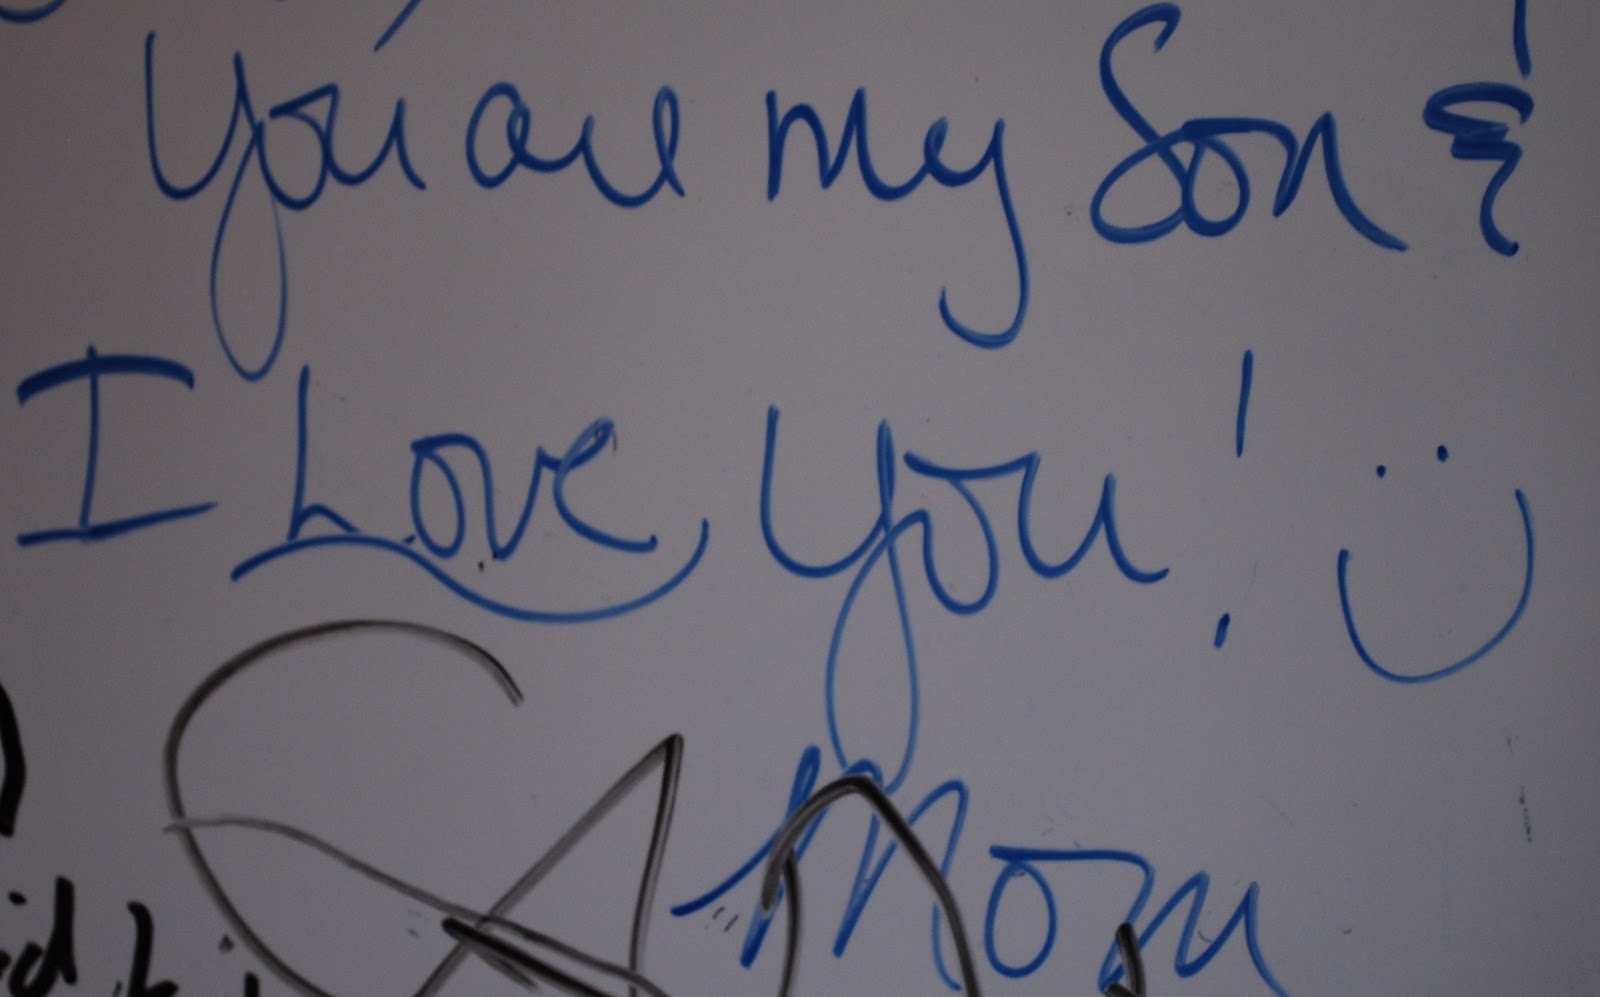 You are my Son &
I Love You! :)
Mom